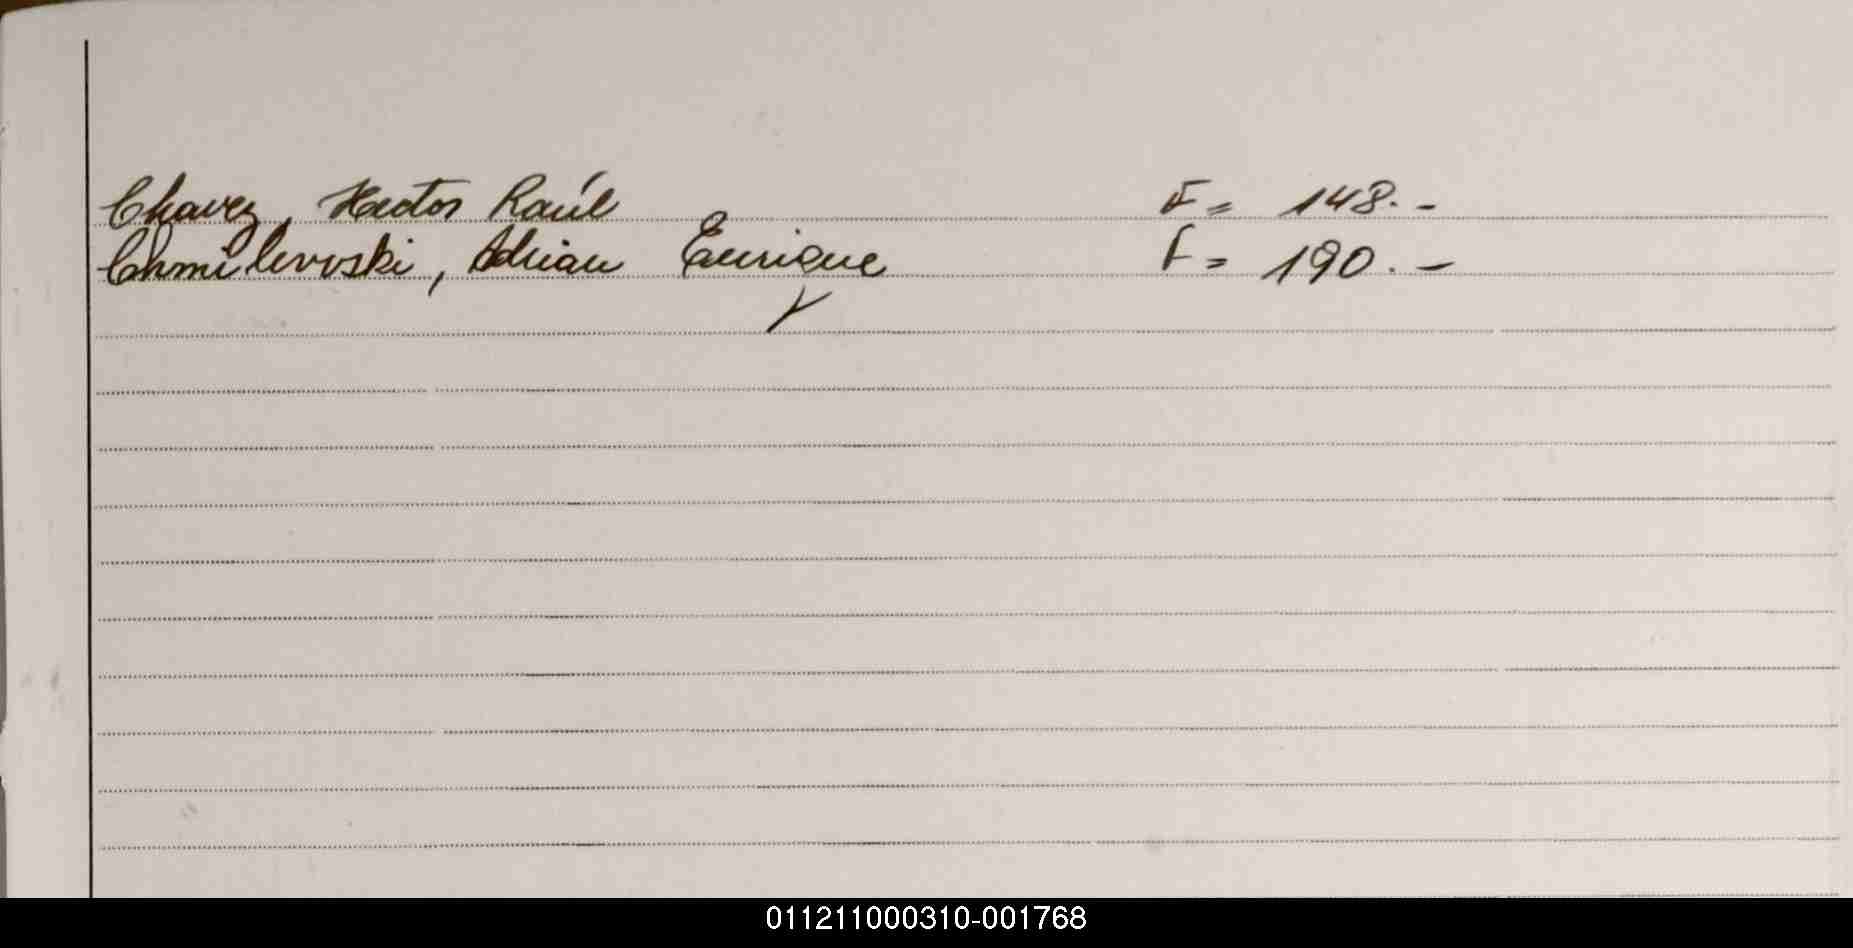 Chavez, Hector Raúl F= 148.-
Chmilevoski, Adrian Enrique F= 190.-
011211000310-001768